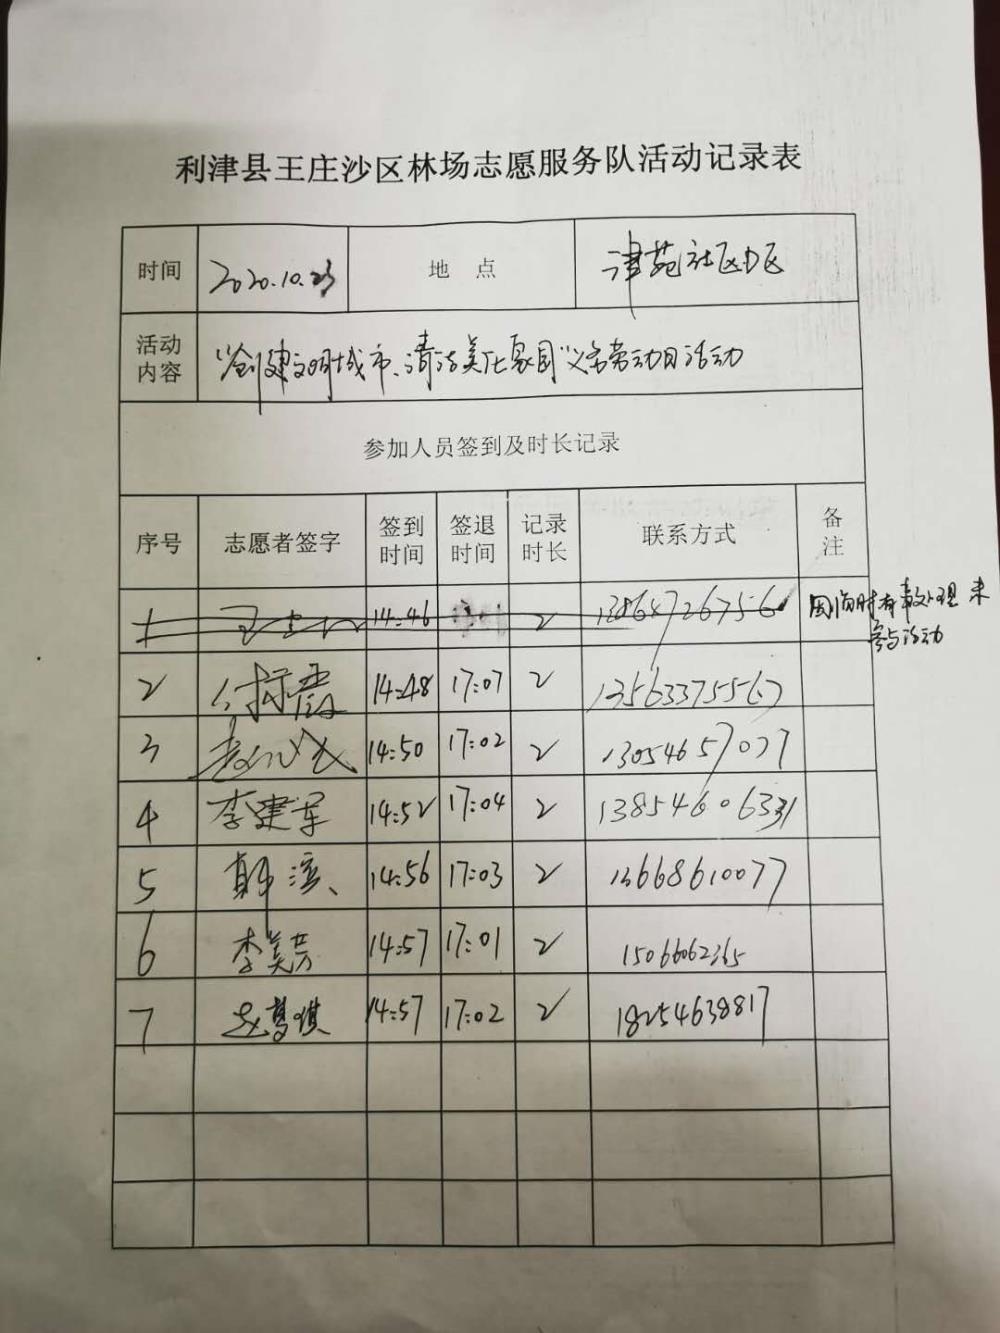 利津县王庄沙区林场志愿服务队活动记录表
时间 2020.10.23 地点 津苑社区D区
活动内容 “创建文明城市、清洁美化家园”义务劳动日活动
参加人员签到及时长记录
序号 志愿者签字 签到时间 签退时间 记录时长 联系方式 备注
1 14:46 2 13864726756 因临时有事处理 未
参与活动
2 14:48 17:07 2 13563375567
3 14:50 17:02 2 13054657077
4 李建军 14:52 17:04 2 13854606331
5 韩滨 14:56 17:03 2 13668610077
6 李美芳 14:57 17:01 2 15066062365
7 赵梦琪 14:57 17:02 2 18254638817